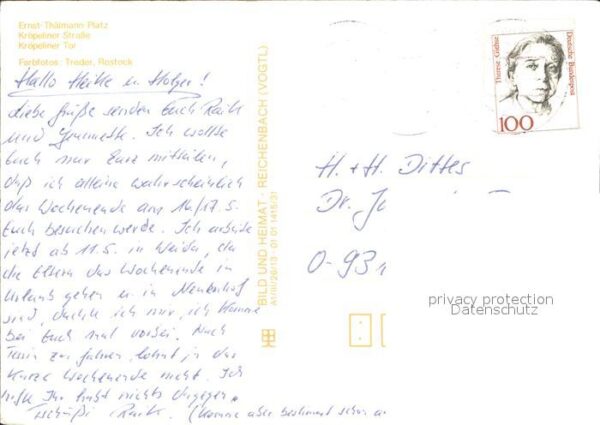 Ernst-Thälmann Platz
Kröpeliner Straße
Kröpeliner Tor
Farbfotos: Treder, Rostock
Hallo Heike u. Holger!
Liebe Grüße senden Euch Raik
und. Ich wollte
Euch nur kurz mitteilen,
daß ich alleine wahrscheinlich
das Wochenende am 16/17.5.
Euch besuchen werde. Ich arbeite
jetzt ab 11.5. in Weida, da
die Eltern das Wochenende in
Urlaub gehen u. in
sind, dachte ich mir, ich komme
bei Euch mal vorbei. Nach
zu fahren, lohnt ja das
kurze Wochenende nicht. Ich
hoffe Ihr habt nichts dagegen.
Tschüßi Raik. (komme aber bestimmt schon a
BILD UND HEIMAT · REICHENBACH (VOGTL)
A1/III/26/13 · 01 01 1415/31
Therese Giehse
Deutsche Bundespost
100
H. + H. Dittes
Dr. J
O-93
privacy protection
Datenschutz